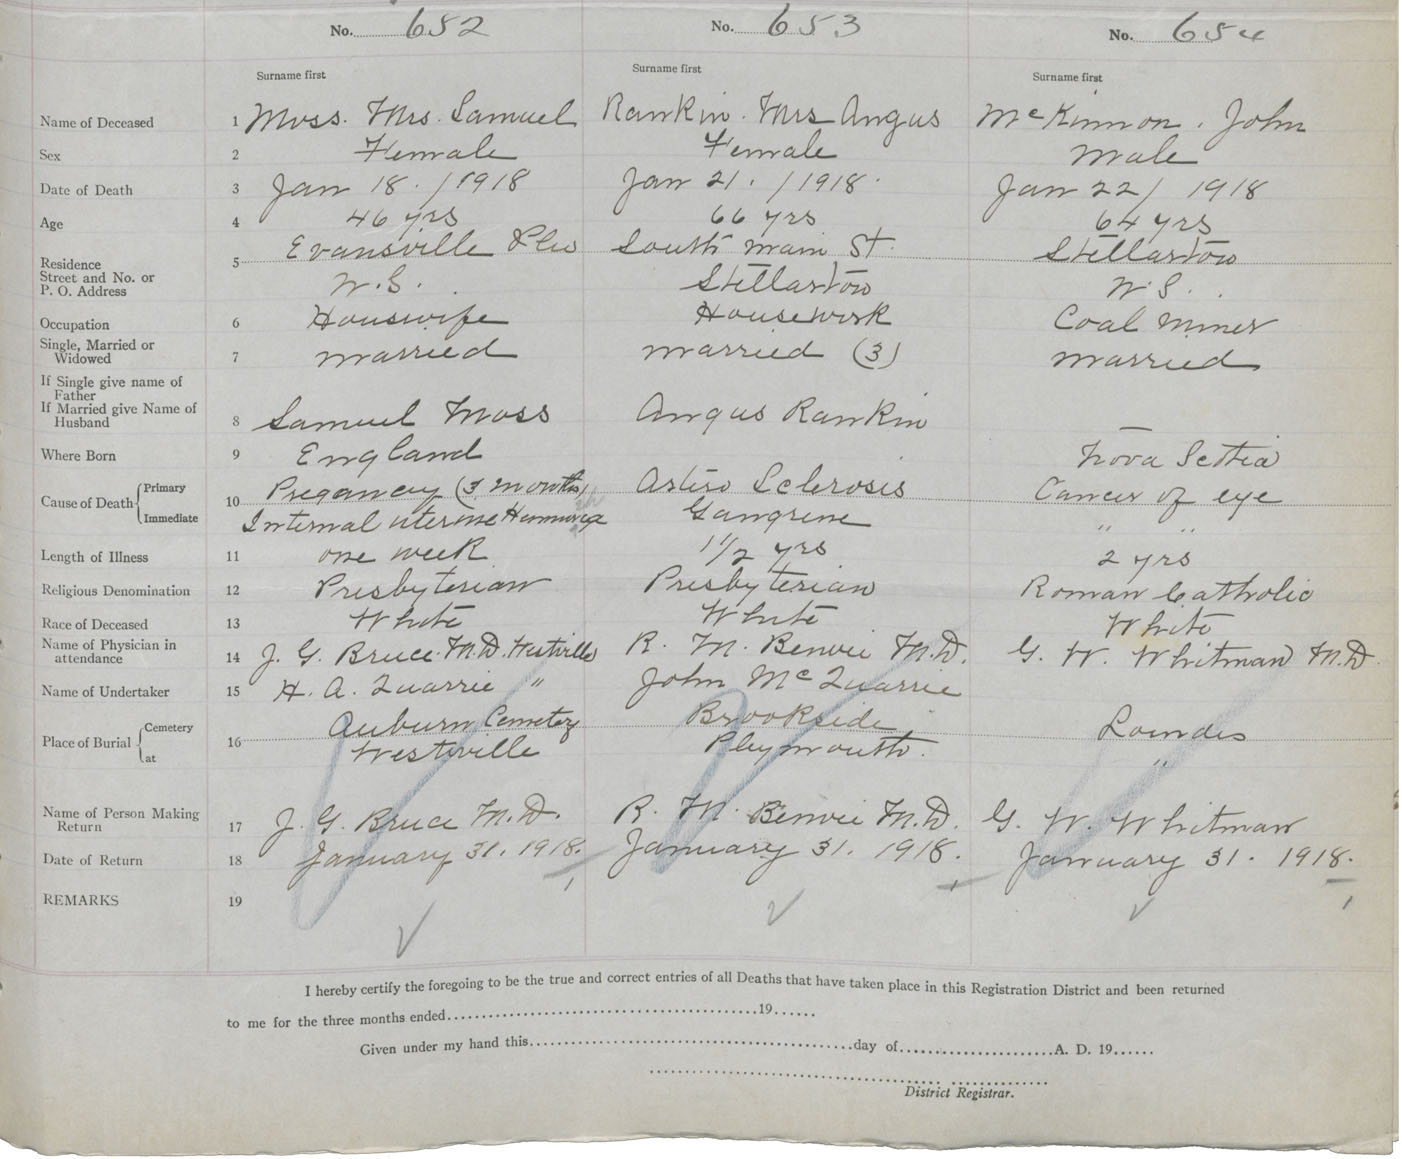 No. 652 No. 653 No. 654
Surname first Surname first Surname first
Name of Deceased 1 Moss. Mrs. Samuel Rankin. Mrs Angus McKinnon. John
Sex 2 Female Female Male
Date of Death 3 Jan 18. / 1918 Jan 21. / 1918. Jan 22 / 1918
Age 4 46 yrs 66 yrs 64 yrs
Evansville Pleu South Main St. Stellarton
Residence 5
Street and No. or N.S. Stellarton N.S.
P. O. Address
Occupation 6 Houswife Housework Coal Miner
Single, Married or
Widowed 7 married married (3) married
If Single give name of
Father
If Married give Name of
Husband 8 Samuel Moss Angus Rankin —
Where Born 9 England Nova Scotia
Cause of Death { Primary 10 Pregancy (3 months) Artiro Sclerosis Cancer of eye
Immediate Internal uterine Gangrene " "
Length of Illness 11 one week 1 1/2 yrs 2 yrs
Religious Denomination 12 Presbyterian Presbyterian Roman Catholic
Race of Deceased 13 White White White
Name of Physician in
attendance 14 J. G. Bruce. M.D. Westville R. M. Benvie M.D. G. W. Whitman M.D.
Name of Undertaker 15 H. A. Quarrie " John McQuarrie
Place of Burial { Cemetery 16 Auburn Cemetery Brookside Lourdes
at Westville Plymouth. "
Name of Person Making
Return 17 J. G. Bruce M.D. R. M. Benvie M.D. G. W. Whitman
Date of Return 18 January 31. 1918. January 31. 1918. January 31. 1918.
REMARKS 19
I hereby certify the foregoing to be the true and correct entries of all Deaths that have taken place in this Registration District and been returned
to me for the three months ended 19
Given under my hand this day of A. D. 19
District Registrar.